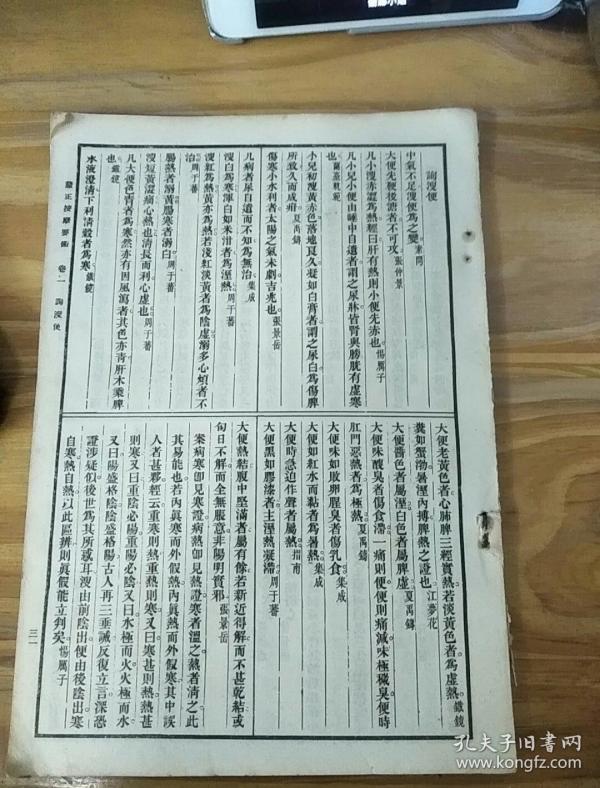 詢溲便
中氣不足溲便爲之變素問
大便先鞕後溏者不可攻張仲景
凡小溲赤澀爲熱經曰肝有熱則小便先赤也惕厲子
凡小兒小便由睡中自遺者謂之尿牀皆腎與膀胱有虛寒
也
小兒初溲黃赤色落地良久凝如白膏者謂之尿白爲傷脾
所致久而成疳夏禹鑄
傷寒小水利者太陽之氣未劇吉兆也張景岳
凡病者尿自遺而不知爲無治集成
溲白爲寒渾白如米泔者爲溼熱周于蕃
溲紅爲熱黃亦爲熱若淺紅淡黃者爲陰虛溺多心煩者不
治周于蕃
腸熱者溺黃腸寒者溺白
溲短黃澀痛心熱也清長而利心虛也周于蕃
凡大便色青者爲寒然亦有因風瀉者其色亦靑肝木乘脾
也鐵鏡
水液澄清下利清穀者爲寒鐵鏡
釐正按摩要術 卷一 詢溲便
大便老黃色者心肺脾三經實熱若淡黃色者爲虛熱鐵鏡
糞如蟹渤暑溼內搏脾熱之證也江夢花
大便醬色者屬溼白色者屬脾虛夏禹鑄
大便味酸臭者傷食滯痛則便便則痛減味極穢臭便時
肛門惡熱者爲極熱夏禹鑄
大便味如敗卵腥臭者傷乳食集成
大便如紅水而黏者爲暑熱集成
大便時急迫作聲者屬熱指南
大便黑如膠漆者主溼熱凝滯周于蕃
大便熱結腹中堅滿者屬有餘若新近得解而不甚乾結或
旬日不解而全無脹意非陽明實邪張景岳
案病寒卽見寒證病熱卽見熱證寒者溫之熱者清之此
其易能也若內眞寒而外假熱內眞熱而外假寒其中誤
人者甚夥經云重寒則熱重熱則寒又曰寒甚則熱熱甚
則寒又曰重陰必陽重陽必陰又曰水極而火火極而水
又曰陽盛格陰陰盛格陽古人再三垂誡反復立言深恐
證涉疑似後世爲其所惑耳溲由前陰出便由後陰出寒
自寒熱自熱以此區辨則眞假能立判矣惕厲子
三一
孔夫子旧书网
www.kongfz.com